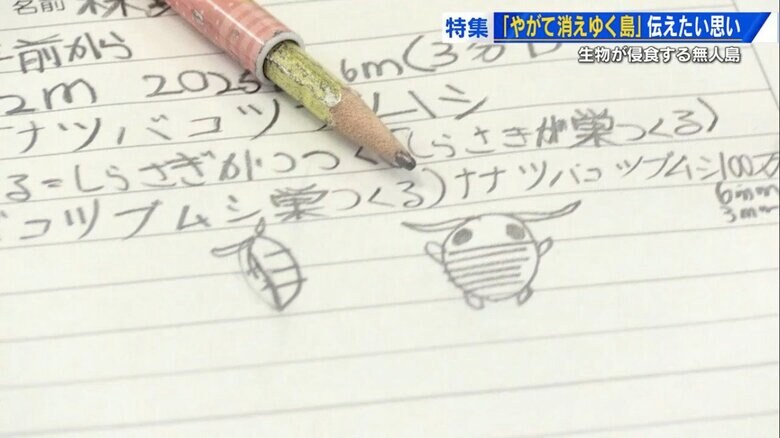 特集 「やがて消えゆく島」伝えたい思い
生物が侵食する無人島
名前
前から
2m 2025 6m(3分の1
ナナツバコツブムシ
る=しらさぎがつつく(しらさきが巣つくる)
コツブムシ巣つくる)ナナツバコツブムシ100万
6mm
3mm